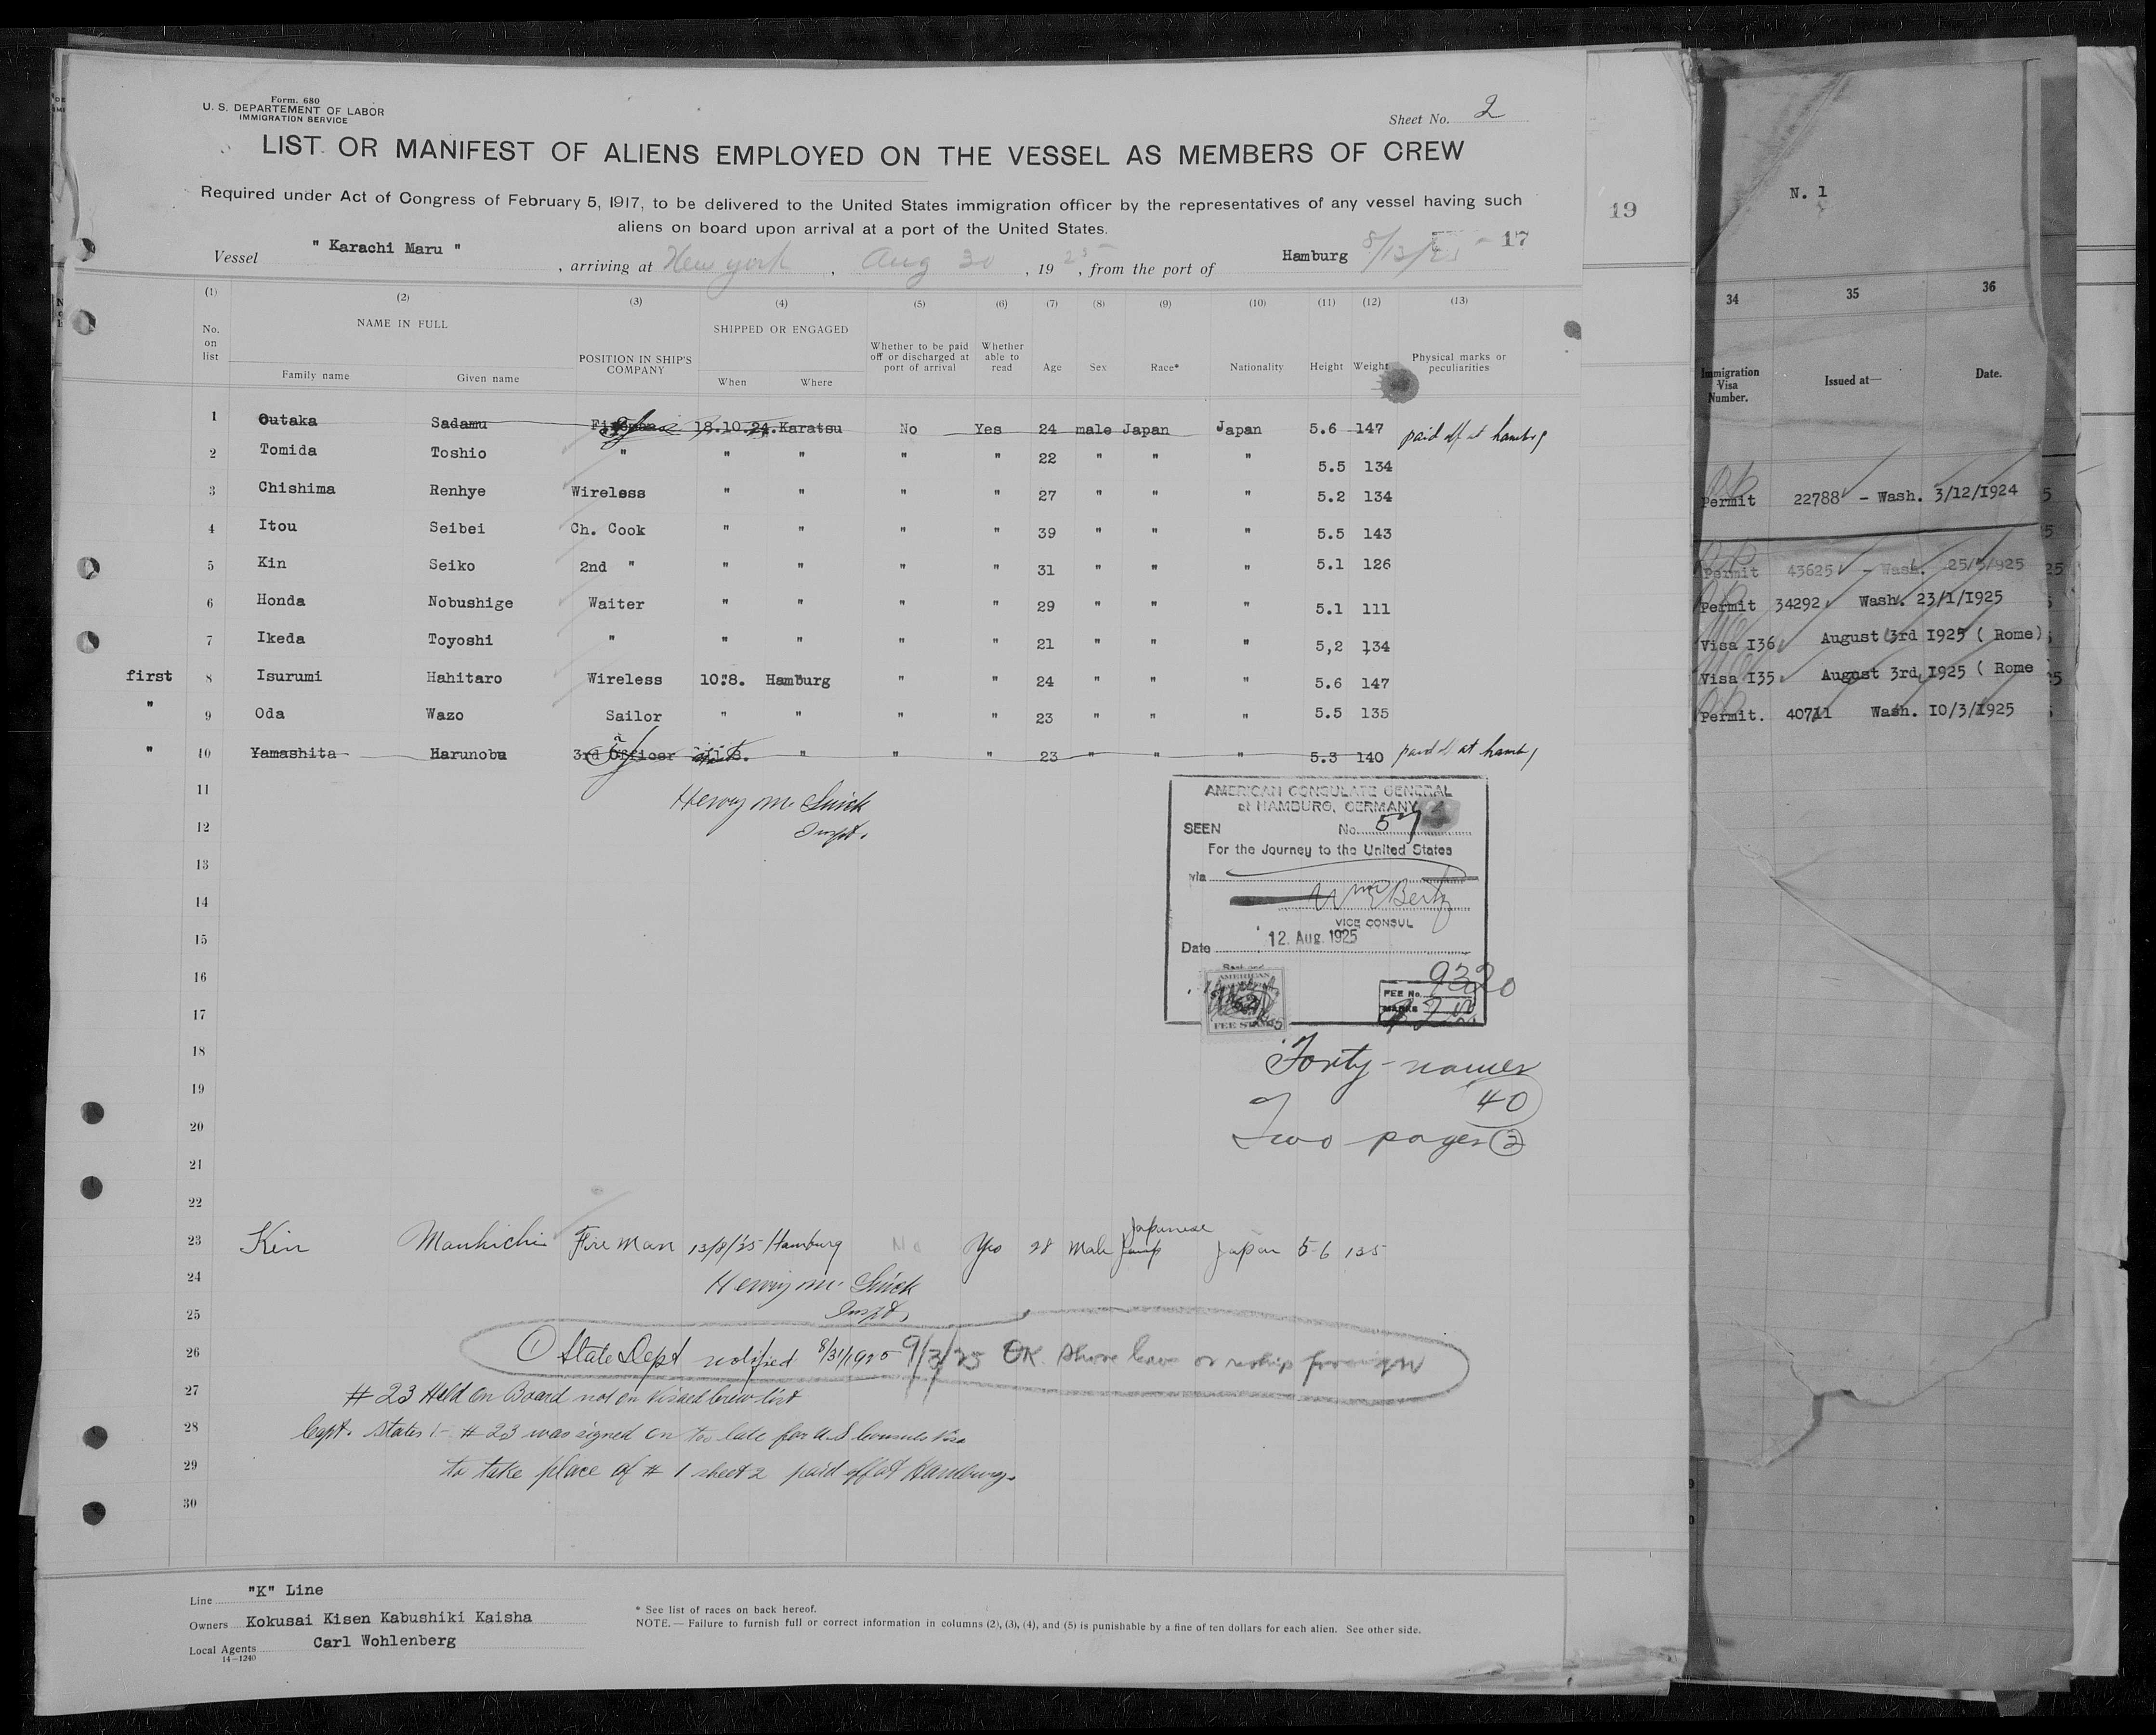 Form. 680
U. S. DEPARTEMENT OF LABOR
IMMIGRATION SERVICE
Sheet No. 2
LIST OR MANIFEST OF ALIENS EMPLOYED ON THE VESSEL AS MEMBERS OF CREW
Required under Act of Congress of February 5, 1917, to be delivered to the United States immigration officer by the representatives of any vessel having such
aliens on board upon arrival at a port of the United States.
Vessel " Karachi Maru " , arriving at New York , Aug 30 , 19 25 , from the port of Hamburg 8/13/25 - 17
(1) (2) (3) (4) (5) (6) (7) (8) (9) (10) (11) (12) (13)
No. on list NAME IN FULL Family name Given name POSITION IN SHIP'S COMPANY SHIPPED OR ENGAGED When Where Whether to be paid off or discharged at port of arrival Whether able to read Age Sex Race* Nationality Height Weight Physical marks or peculiarities
1 Outaka Sadamu Fireman 18.10.24. Karatsu No Yes 24 male Japan Japan 5.6 147 paid off at hambg
2 Tomida Toshio " " " " " 22 " " " 5.5 134
3 Chishima Renhye Wireless " " " " 27 " " " 5.2 134
4 Itou Seibei Ch. Cook " " " " 39 " " " 5.5 143
5 Kin Seiko 2nd " " " " " 31 " " " 5.1 126
6 Honda Nobushige Waiter " " " " 29 " " " 5.1 111
7 Ikeda Toyoshi " " " " " 21 " " " 5,2 134
first 8 Isurumi Hahitaro Wireless 10.8. Hamburg " " 24 " " " 5.6 147
" 9 Oda Wazo Sailor " " " " 23 " " " 5.5 135
" 10 Yamashita Harunobu 3rd Officer " " " 23 " " " 5.3 140 paid off at hambg
11
Henry M. Quick
12
Inspt.
13
14
15
16
17
18
19
20
21
22
AMERICAN CONSULATE GENERAL
at HAMBURG, GERMANY
SEEN No. 574
For the Journey to the United States
via
VICE CONSUL
Date 12. Aug. 1925
AMERICAN
FEE STAMP
FEE No. 9320
MARKS
Forty - names
40
Two pages 2
23 Kin Mankichi Fireman 13/8/25 Hamburg No Yes 28 Male Japanese Japan 5 6 135
24
Henry M. Quick
25
Inspt.
26 1 State Dept notified 8/31/1925 9/3/25 OK shore leave or reship foreign
27 # 23 Held on Board not on Visaed Crew list
28 Capt. States :- # 23 was signed on too late for U.S Consuls Visa
29 to take place of # 1 sheet 2 paid off at Hamburg.
30
Line "K" Line
Owners Kokusai Kisen Kabushiki Kaisha
Local Agents Carl Wohlenberg
14-1240
* See list of races on back hereof.
NOTE. — Failure to furnish full or correct information in columns (2), (3), (4), and (5) is punishable by a fine of ten dollars for each alien. See other side.
19
N. 1
34 35 36
Immigration Visa Number. Issued at— Date.
Permit 22788 - Wash. 3/12/1924
Permit 43625 - Wash. 25/5/925
Permit 34292 Wash. 23/1/1925
Visa I36 August 3rd 1925 ( Rome)
Visa I35 August 3rd 1925 ( Rome
Permit. 40711 Wash. 10/3/1925